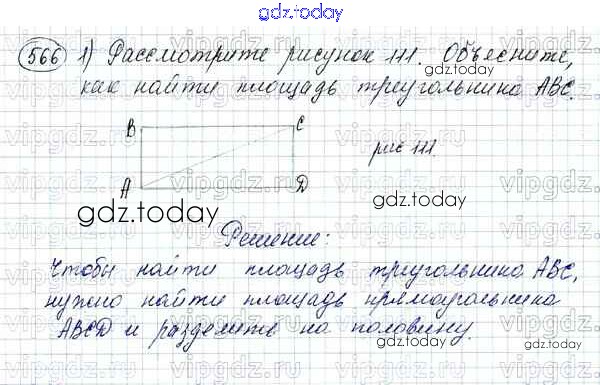 gdz.today
566 1) Рассмотрите рисунок 111. Объясните,
gdz.today
как найти площадь треугольника ABC.
B C
рис 111.
A D
gdz.today
gdz.today
Решение:
Чтобы найти площадь треугольника ABC,
нужно найти площадь прямоугольника
ABCD и разделить на половину.
gdz.today
vipgdz.ru